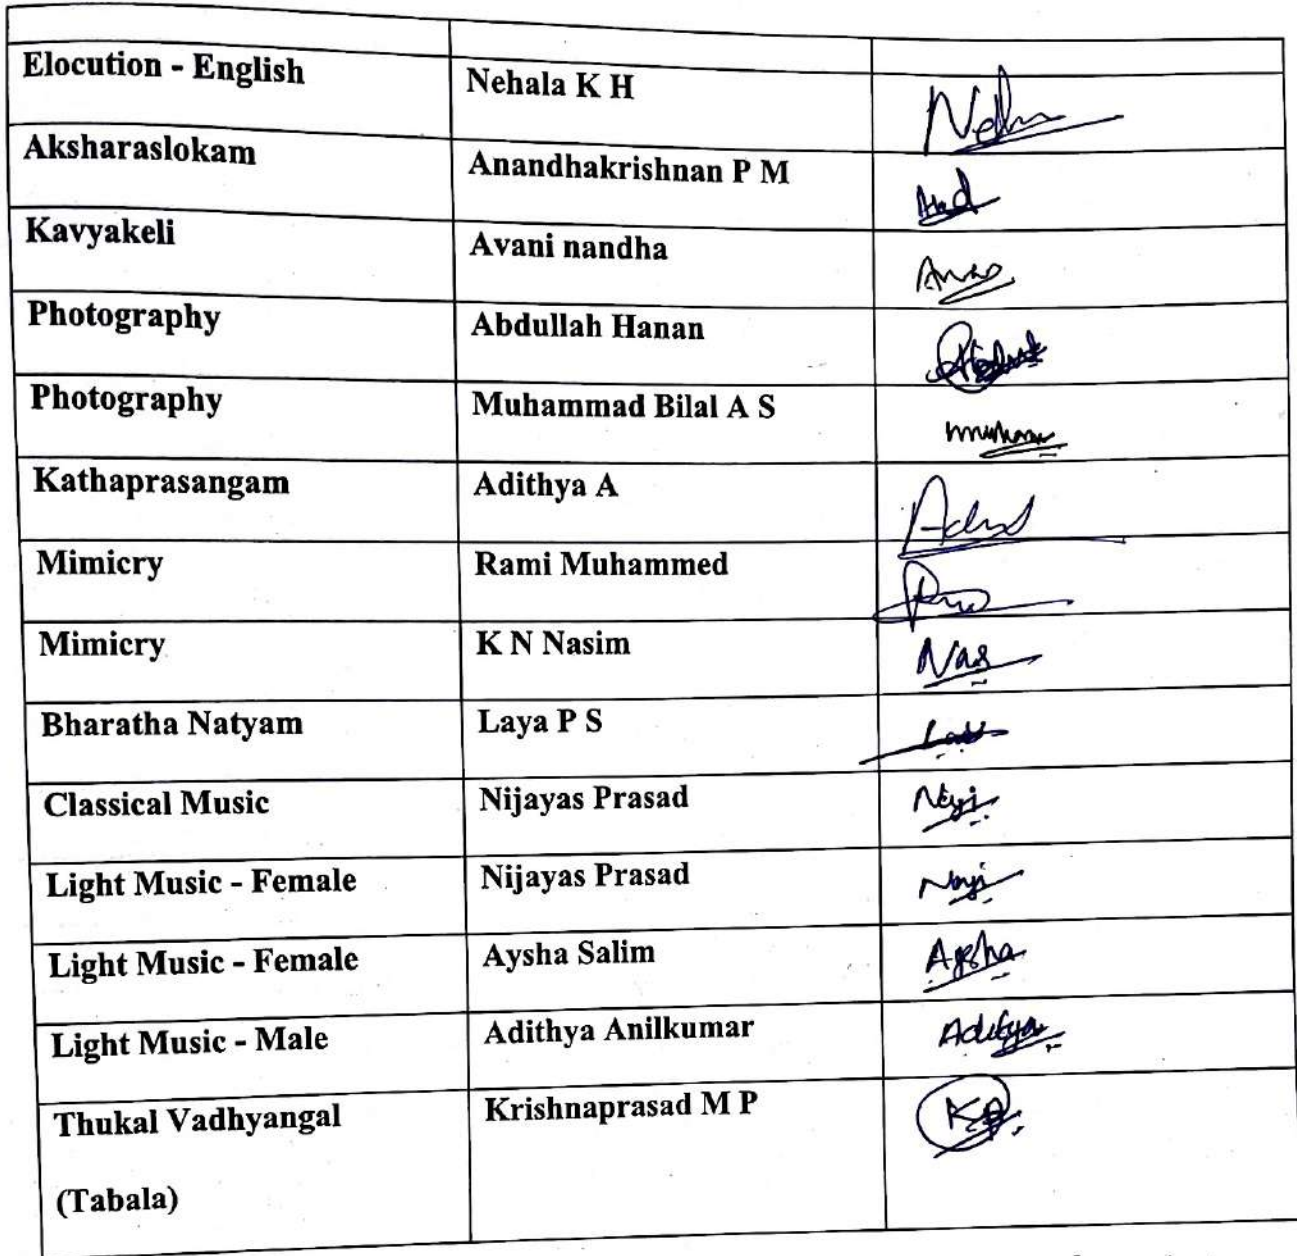 Elocution - English Nehala K H
Aksharaslokam Anandhakrishnan P M
Kavyakeli Avani nandha
Photography Abdullah Hanan
Photography Muhammad Bilal A S
Kathaprasangam Adithya A
Mimicry Rami Muhammed
Mimicry K N Nasim Nas
Bharatha Natyam Laya P S
Classical Music Nijayas Prasad
Light Music - Female Nijayas Prasad
Light Music - Female Aysha Salim Aysha
Light Music - Male Adithya Anilkumar
Thukal Vadhyangal Krishnaprasad M P KP
(Tabala)